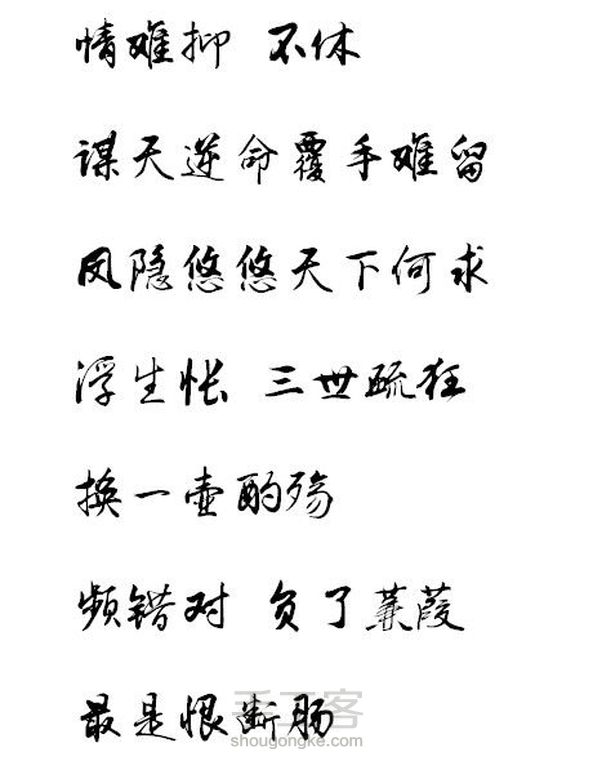 情难抑 不休
谋天逆命覆手难留
凤隐悠悠天下何求
浮生怅 三世疏狂
换一壶酌殇
频错对 负了蒹葭
最是恨断肠
手工客
shougongke.com